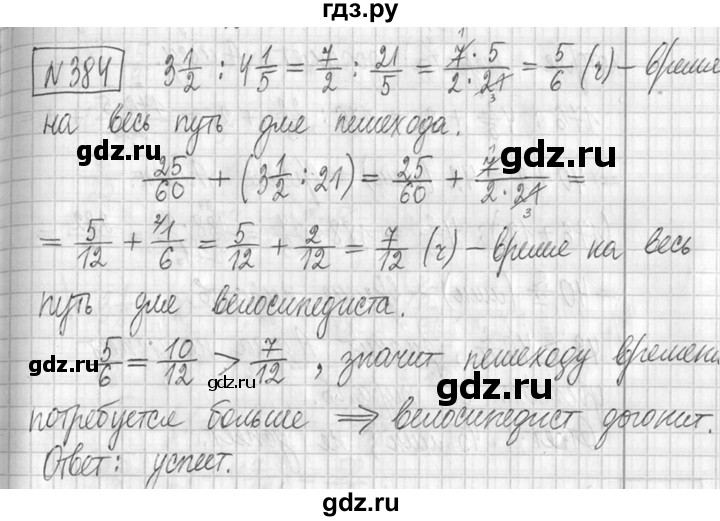 гдз.ру
N384 3 1/2 : 4 1/5 = 7/2 : 21/5 = 7·5/2·21 = 5/6 (ч) – время
на весь путь для пешехода.
gdz.ru
gdz.ru
25/60 + (3 1/2 : 21) = 25/60 + 7/2·21 =
= 5/12 + 1/6 = 5/12 + 2/12 = 7/12 (ч) – время на весь
путь для велосипедиста.
5/6 = 10/12 > 7/12, значит пешеходу времени
gdz.ru
gdz.ru
gdz.ru
потребуется больше ⇒ велосипедист догонит.
Ответ: успеет.
gdz.ru
gdz.ru